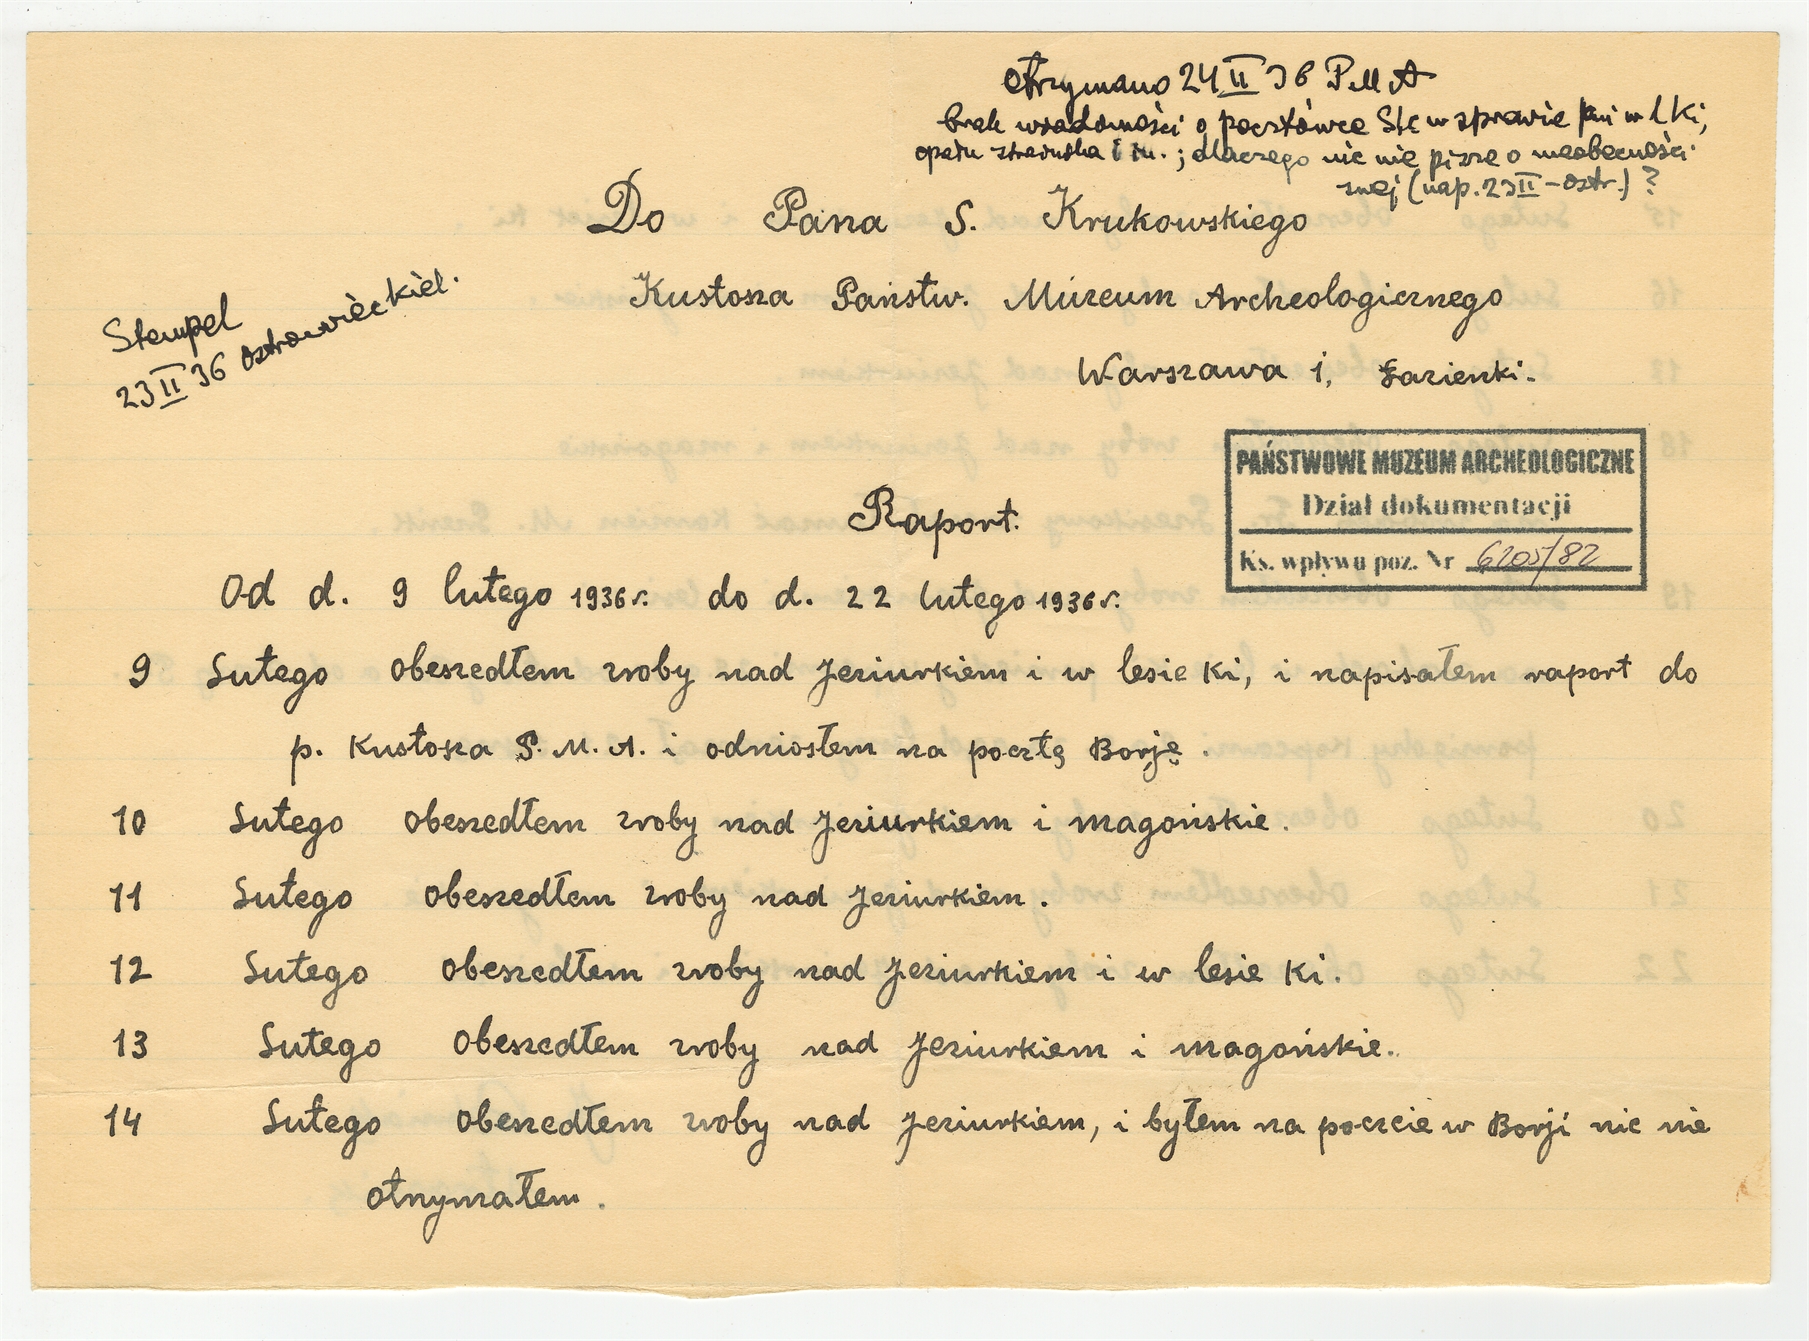 Otrzymano 24 II 36 PMA
brak wiadomości o pocztówce Stę w sprawie pni w l Ki,
opału i in.; dlaczego nic nie pisze o nieobecności
swej (nap. 23 II – Ostr.) ?
Do Pana S. Krukowskiego
Kustosza Państw. Muzeum Archeologicznego
Warszawa 1, Łazienki.
Stempel
23 II 36 Ostrowiec Kiel.
PAŃSTWOWE MUZEUM ARCHEOLOGICZNE
Dział dokumentacji
Ks. wpływu poz. Nr 6205/82
Raport.
Od d. 9 lutego 1936 r. do d. 22 lutego 1936 r.
9 Lutego obeszedłem zroby nad Jeziurkiem i w lesie Ki, i napisałem raport do
p. Kustosza P. M. A. i odniosłem na pocztę Borję.
10 Lutego obeszedłem zroby nad Jeziurkiem i magońskie.
11 Lutego obeszedłem zroby nad Jeziurkiem.
12 Lutego obeszedłem zroby nad Jeziurkiem i w lesie Ki.
13 Lutego obeszedłem zroby nad Jeziurkiem i magońskie.
14 Lutego obeszedłem zroby nad Jeziurkiem, i byłem na poczcie w Borji nic nie
otrzymałem.